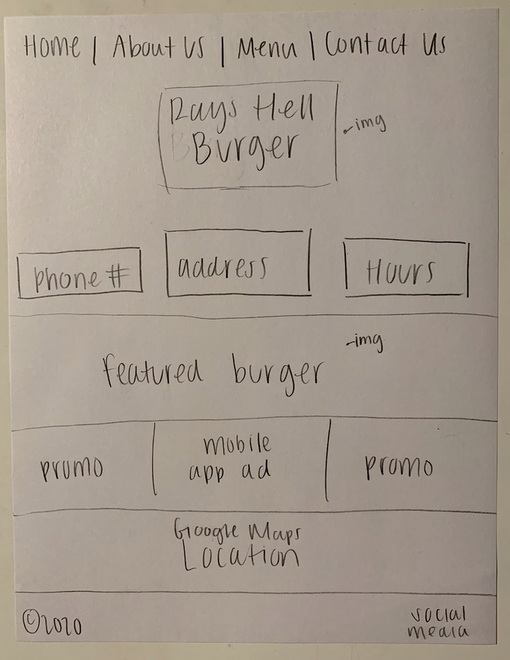 Home | About Us | Menu | Contact Us
Rays Hell
Burger
-img
phone #
address
Hours
-img
featured burger
promo
mobile
app ad
promo
Google Maps
Location
©2020
social
media